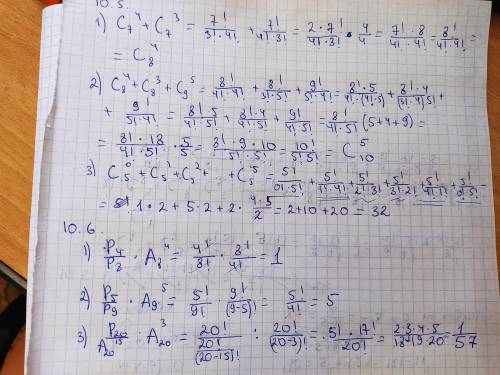 10.5.
1) C₇⁴ + C₇³ = 7!/(3!·4!) + 7!/(4!·3!) = (2·7!)/(4!·3!) · 4/4 = (7!·8)/(4!·4!) = 8!/(4!·4!) =
= C₈⁴
2) C₈⁴ + C₈³ + C₉⁵ = 8!/(4!·4!) + 8!/(3!·5!) + 9!/(5!·4!) = (8!·5)/(4!·(4!·5)) + (8!·4)/((3!·4)5!) +
+ 9!/(4!·5!) = (8!·5)/(4!·5!) + (8!·4)/(4!·5!) + 9!/(4!·5!) = 8!/(4!·5!) (5+4+9) =
= (8!·18)/(4!·5!) · 5/5 = (8!·9·10)/(5!·5!) = 10!/(5!5!) = C₁₀⁵
3) C₅⁰ + C₅¹ + C₅² + + C₅⁵ = 5!/(0!·5!) + 5!/(1!·4!) + 5!/(2!·3!) + 5!/(3!·2!) + 5!/(4!1!) + 5!/(0·5!) =
= 1·2+5·2+2·(4·5)/2 = 2+10+20 = 32
10.6.
1) P₄/P₈ · A₈⁴ = 4!/8! · 8!/4! = 1
2) P₅/P₉ · A₉⁵ = 5!/9! · 9!/(9-5)! = 5!/4! = 5
3) P₂₀/A₂₀¹⁵ : A₂₀³ = 20!/(20!/(20-15)!) : 20!/(20-3)! = (5!·17!)/20! = (2·3·4·5)/(18·19·20) = 1/57